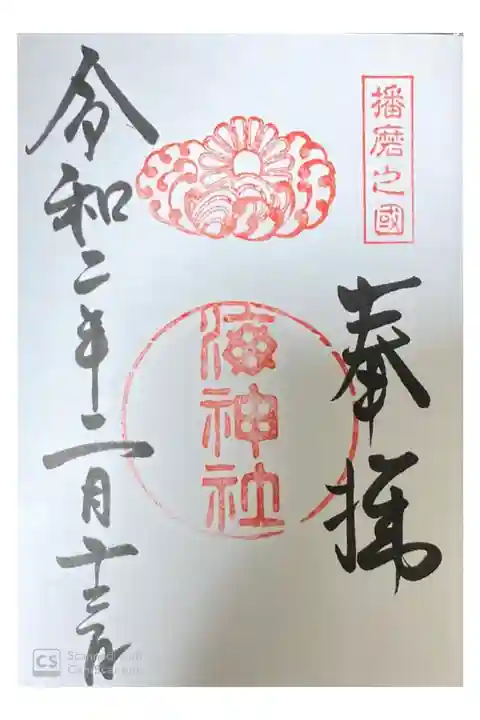 播磨之國
奉拝
海神社
令和二年二月十三日
CS
Scanned with
CamScanner